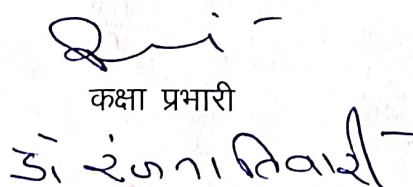 कक्षा प्रभारी
डॉ रंजना तिवारी